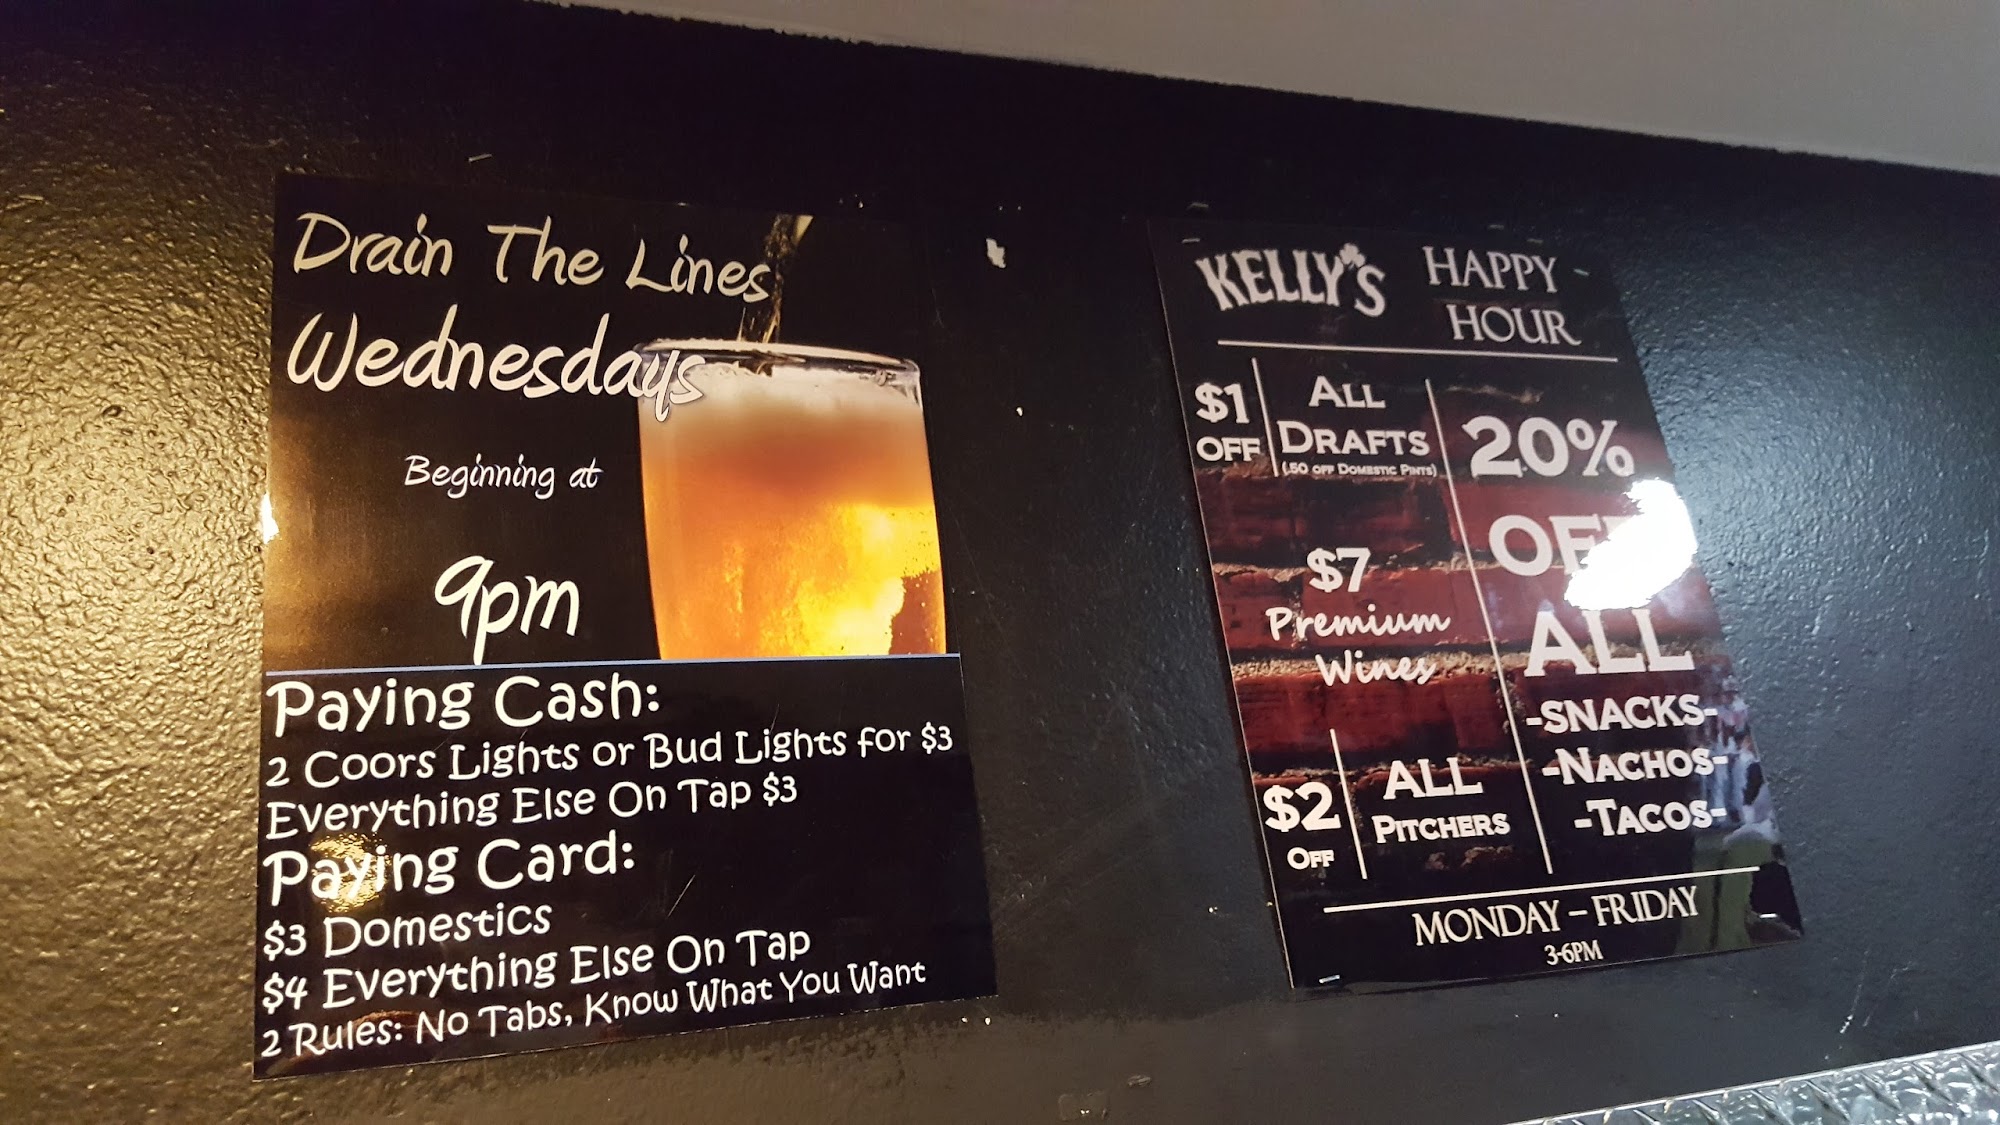 Drain The Lines
Wednesdays
Beginning at
9pm
Paying Cash:
2 Coors Lights or Bud Lights for $3
Everything Else On Tap $3
Paying Card:
$3 Domestics
$4 Everything Else On Tap
2 Rules: No Tabs, Know What You Want
KELLY'S
HAPPY
HOUR
$1
OFF
ALL
DRAFTS
(.50 OFF DOMESTIC PINTS)
$7
Premium
Wines
$2
OFF
ALL
PITCHERS
20%
OFF
ALL
-SNACKS-
-NACHOS-
-TACOS-
MONDAY – FRIDAY
3-6PM